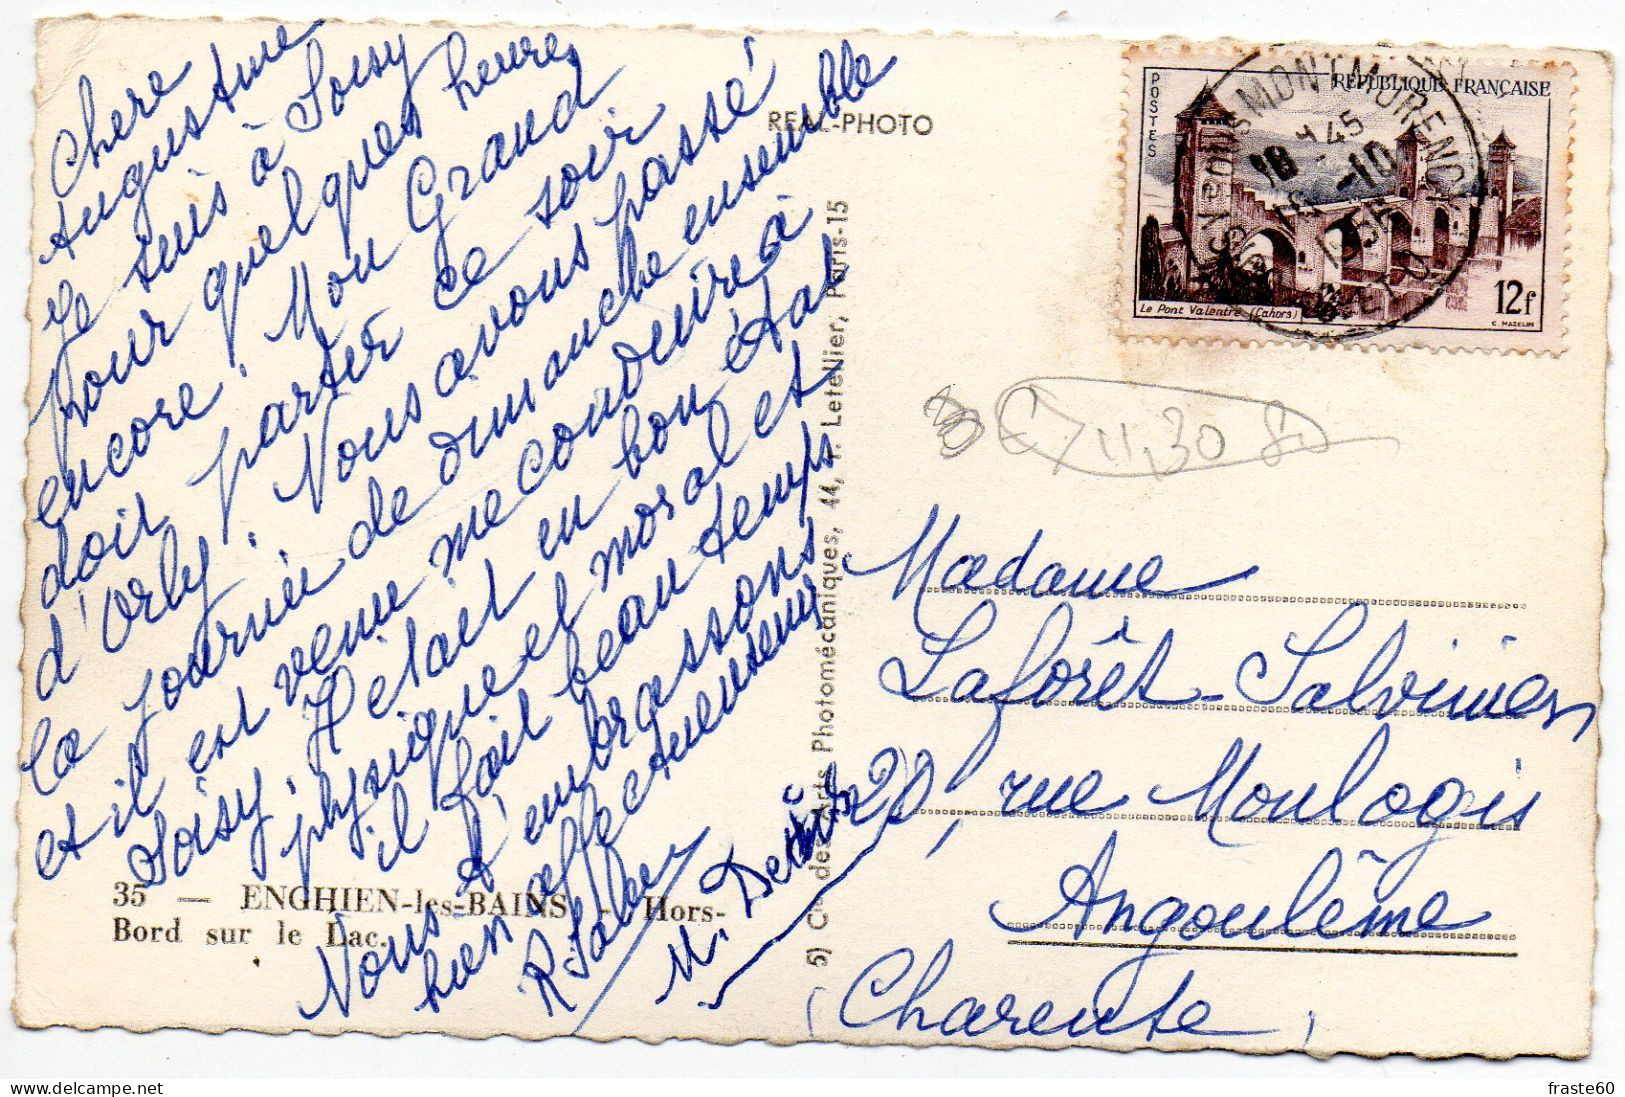 Chère
Augustine
Je suis à Soisy
pour quelques heures
encore. Mon Grand
doit partir ce soir
d'Orly. Nous avons passé
la journée de dimanche ensemble
et il est venu me conduire à
Soisy. Il était en bon état
physique et moral et
il fait beau temps
Nous t'embrassons
bien affectueusement.
R. Saber
M.
35 — ENGHIEN-les-BAINS — Hors-
Bord sur le Lac.
REAL-PHOTO
5) Cie des Arts Photomécaniques, 44, r. Letellier, Paris-15
POSTES
REPUBLIQUE FRANÇAISE
Le Pont Valentré (Cahors)
12f
C. MAZELIN
SOISY-SOUS-MONTMORENCY
18 H 45
-10
SEINE-ET-O
11,30
Madame
Laforêt-Salvinien
20, rue Monlogis
Angoulême
(Charente)
fraste60